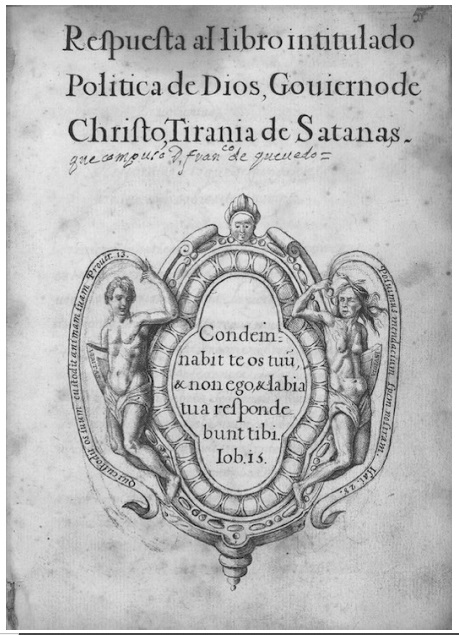 Respuesta al libro intitulado
Politica de Dios, Gouierno de
Christo, Tirania de Satanas.
que compuso D. fran.co de queuedo =
Condem=
nabit te os tuũ,
& non ego, & labia
tua responde
bunt tibi.
Iob. 15.
Qui custodit os suum custodit animam suam. Prouer. 13.
Posuimus mendacium spem nostram. Isai. 28.